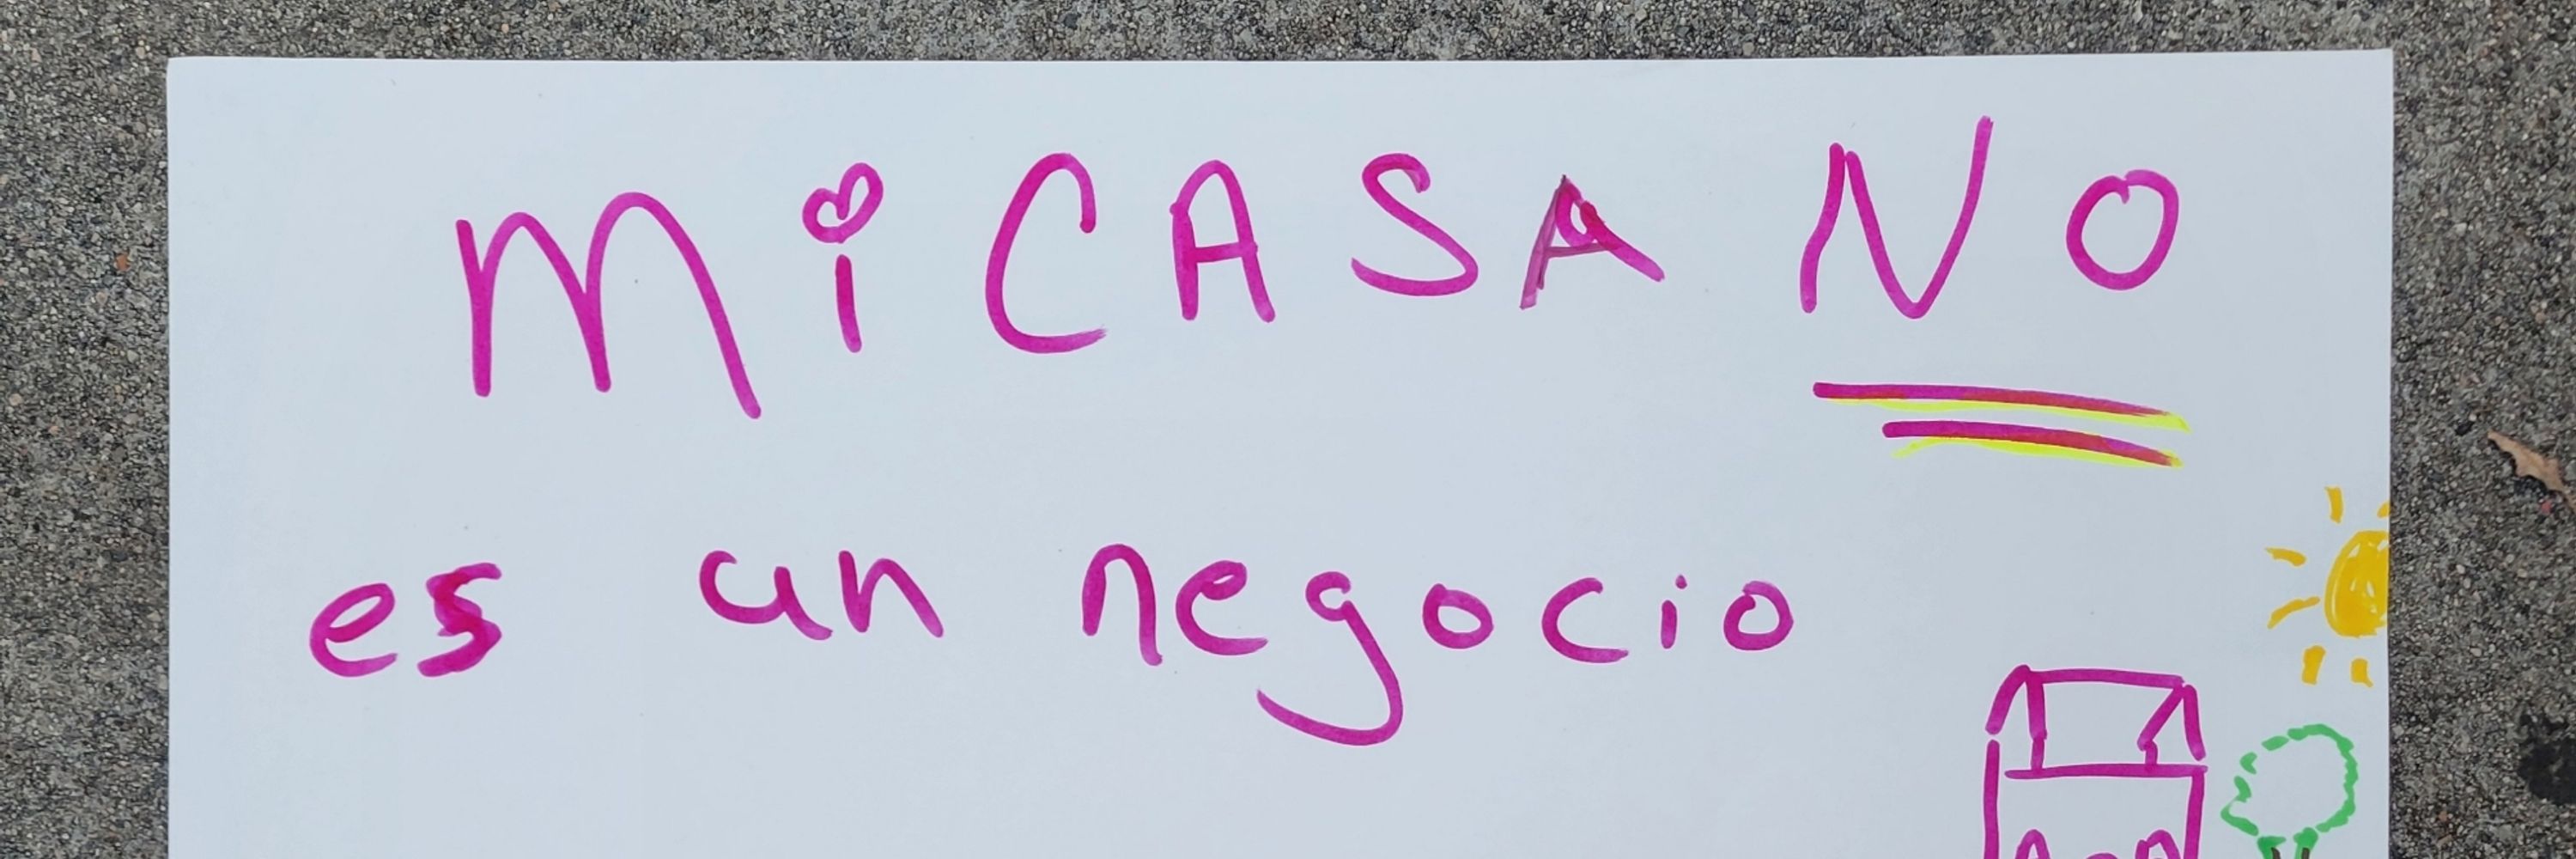 MiCASA NO
es un negocio